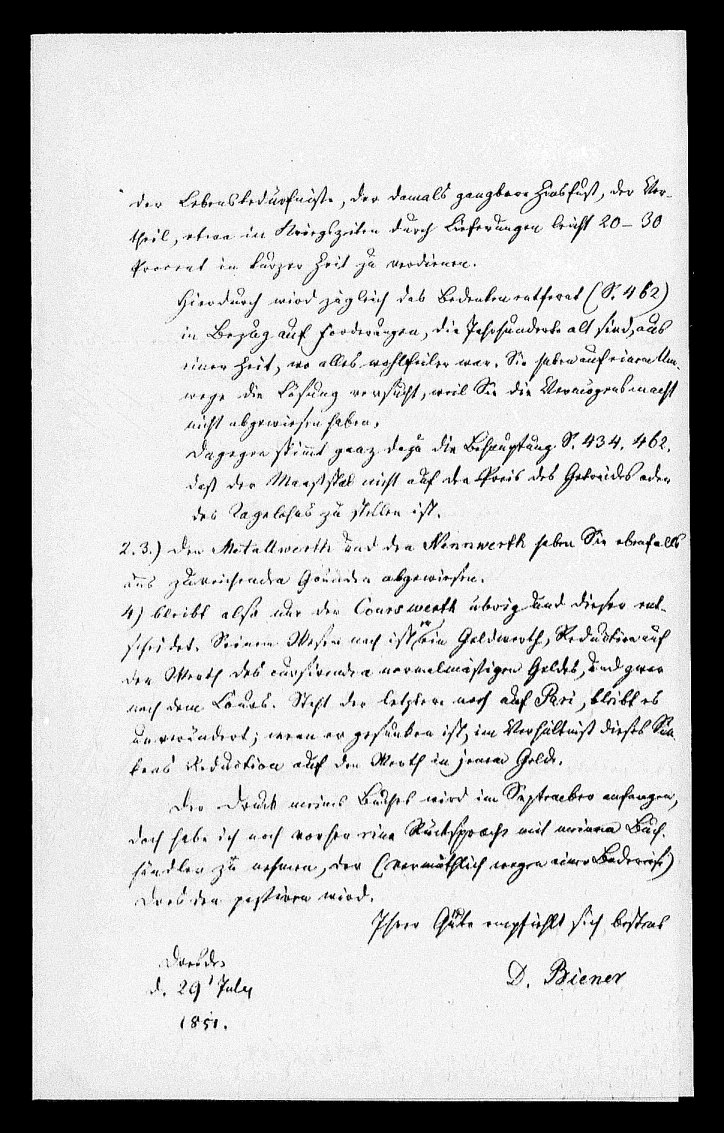 der Lebensbedürfniße, der damals gangbare Zinsfuß, der Vor-
theil, etwa in Kriegszeiten durch Lieferungen leicht 20 – 30
Procent in kurzer Zeit zu verdienen.
Hierdurch wird zugleich das Bedenken entfernt (S. 462)
in Bezug auf Forderungen, die Jahrhunderte alt sind, aus
einer Zeit, wo alles wohlfeiler war. Sie haben auf einem Um-
wege die Lösung versucht, weil Sie die Vermögensmacht
nicht abgewiesen haben.
Dagegen stimmt ganz dazu die Behauptung S. 434. 462.
daß der Maaßstab nicht auf den Preis des Getreides oder
des Tagelohns zu stellen ist.
2. 3.) Den Metallwerth und den Nennwerth haben Sie ebenfalls
aus zureichenden Gründen abgewiesen.
4) bleibt also nur der Courswerth übrig und dieser ent-
scheidet. Seinem Wesen nach ist er ein Geldwerth, Reduction auf
den Werth des cursirenden normalmäßigen Geldes, und zwar
nach dem Cours. Steht der letztere noch auf Pari, bleibt es
unverändert; wenn er gesunken ist, im Verhältniß dieses Sin-
kens Reduction auf den Werth in jenem Gelde.
Der Druck meines Buches wird im September anfangen,
doch habe ich noch vorher eine Rücksprache mit meinem Buch-
händler zu nehmen, der (vermuthlich wegen einer Badereise)
Dresden passiren wird.
Ihrer Güte empfiehlt sich bestens
Dresden
d. 29 July
1851.
D. Biener